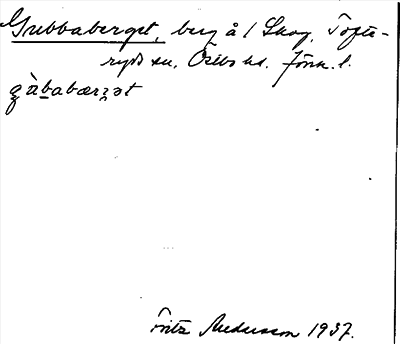 Gubbaberget, berg å / Skog, Tofte-
ryds sn. Östbo hd. Jönk. l.
gùbabærʒət
Fritz Andersson 1937.